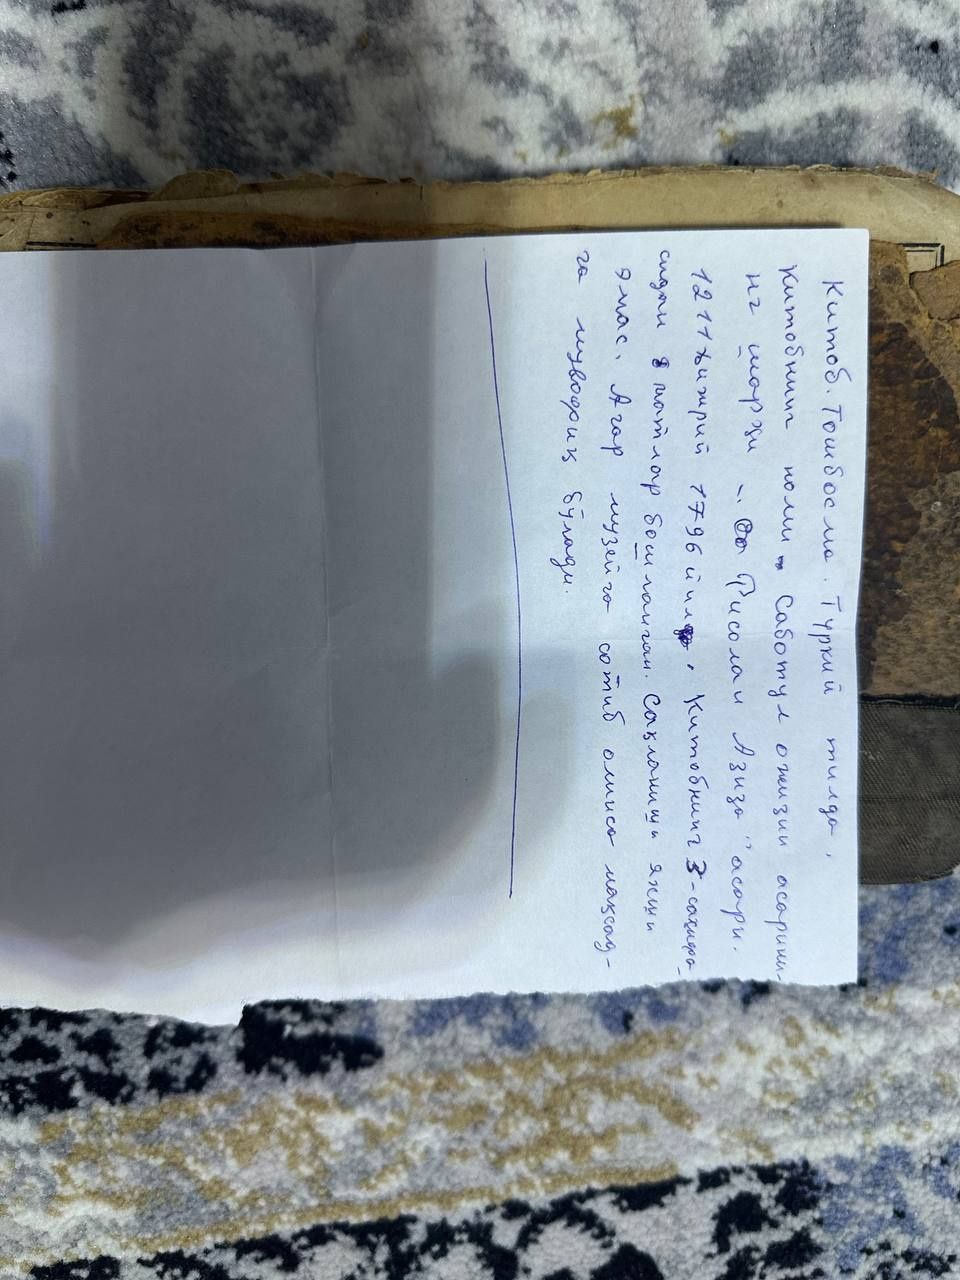 Китоб. Тошбосма. Туркий тилда,
Китобнинг номи - Саботул ожизин асарини-
нг шархи -. Рисолаи Азиза" асари.
1211 хижрий 1796 йил. Китобнинг 3-сахифа-
сидан матлар бошланган. Сақланиши яхши
эмас. Агар музейга сотиб олинса мақсад-
га мувофиқ бўлади.